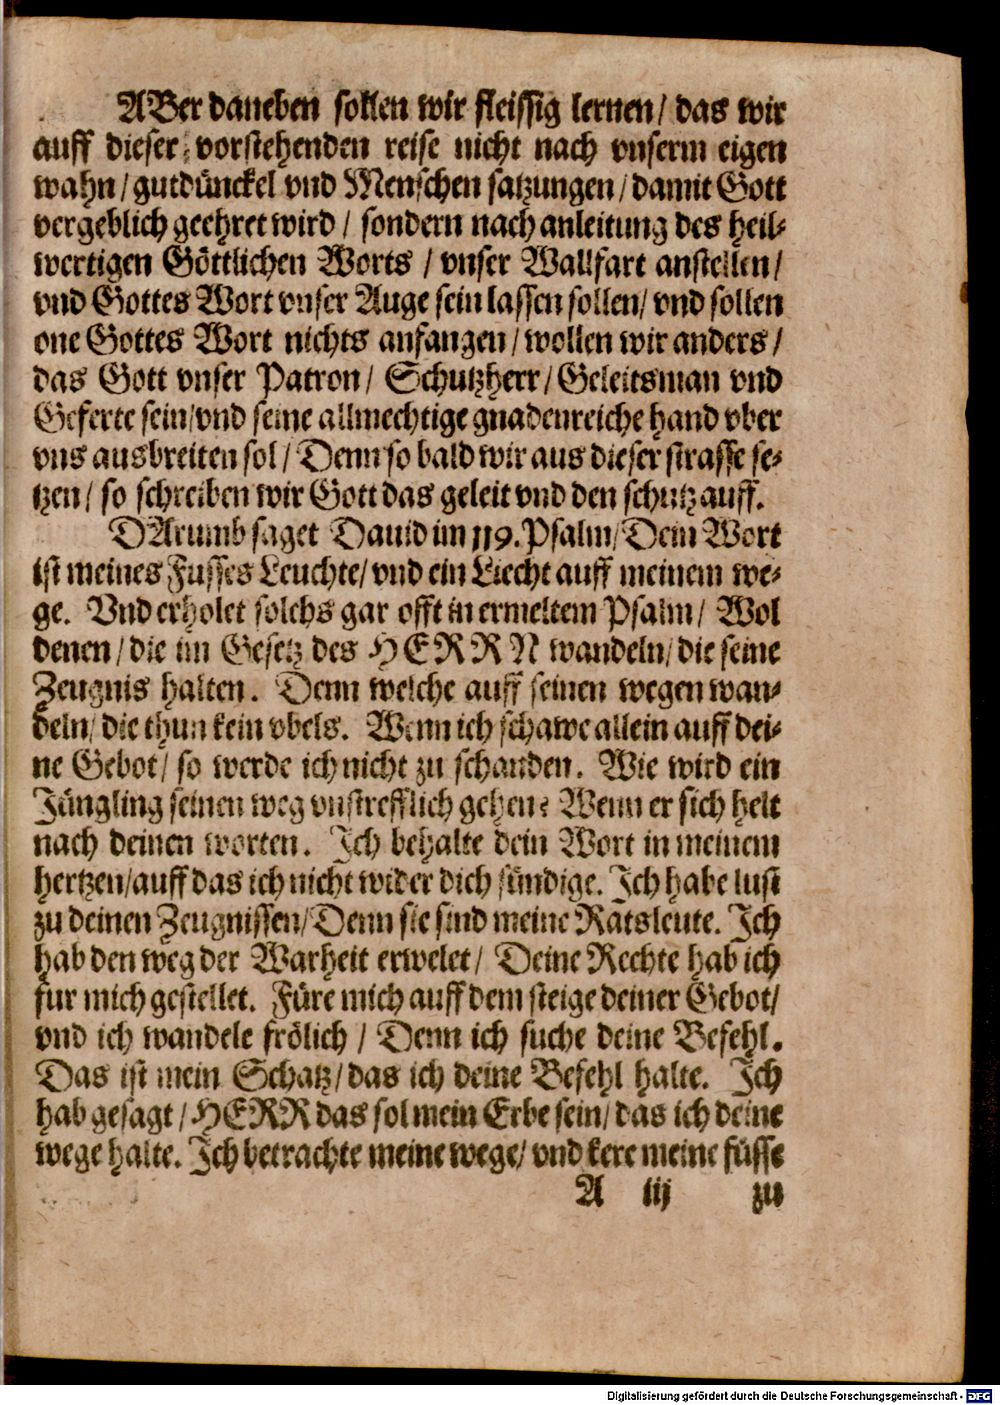 ABer daneben sollen wir fleissig lernen / das wir
auff dieser vorstehenden reise nicht nach vnserm eigen
wahn / gutdünckel vnd Menschen satzungen / damit Gott
vergeblich geehret wird / sondern nach anleitung des heil-
wertigen Göttlichen Worts / vnser Wallfart anstellen /
vnd Gottes Wort vnser Auge sein lassen sollen / vnd sollen
one Gottes Wort nichts anfangen / wollen wir anders /
das Gott vnser Patron / Schutzherr / Geleitsman vnd
Geferte sein / vnd seine allmechtige gnadenreiche hand vber
vns ausbreiten sol / Denn so bald wir aus dieser strasse se-
tzen / so schreiben wir Gott das geleit vnd den schutz auff.
DArumb saget Dauid im 119. Psalm / Dein Wort
ist meines Fusses Leuchte / vnd ein Liecht auff meinem we-
ge. Vnd erholet solchs gar offt in ermeltem Psalm / Wol
denen / die im Gesetz des HERRN wandeln / die seine
Zeugnis halten. Denn welche auff seinen wegen wan-
deln / die thun kein vbels. Wenn ich schawe allein auff dei-
ne Gebot / so werde ich nicht zu schanden. Wie wird ein
Jüngling seinen weg vnstrefflich gehen? Wenn er sich helt
nach deinen worten. Ich behalte dein Wort in meinem
hertzen / auff das ich nicht wider dich sündige. Ich habe lust
zu deinen Zeugnissen / Denn sie sind meine Ratsleute. Ich
hab den weg der Warheit erwelet / Deine Rechte hab ich
fur mich gestellet. Füre mich auff dem steige deiner Gebot /
vnd ich wandele frölich / Denn ich suche deine Befehl.
Das ist mein Schatz / das ich deine Befehl halte. Ich
hab gesagt / HERR das sol mein Erbe sein / das ich deine
wege halte. Ich betrachte meine wege / vnd kere meine füsse
A iij zu
Digitalisierung gefördert durch die Deutsche Forschungsgemeinschaft - DFG